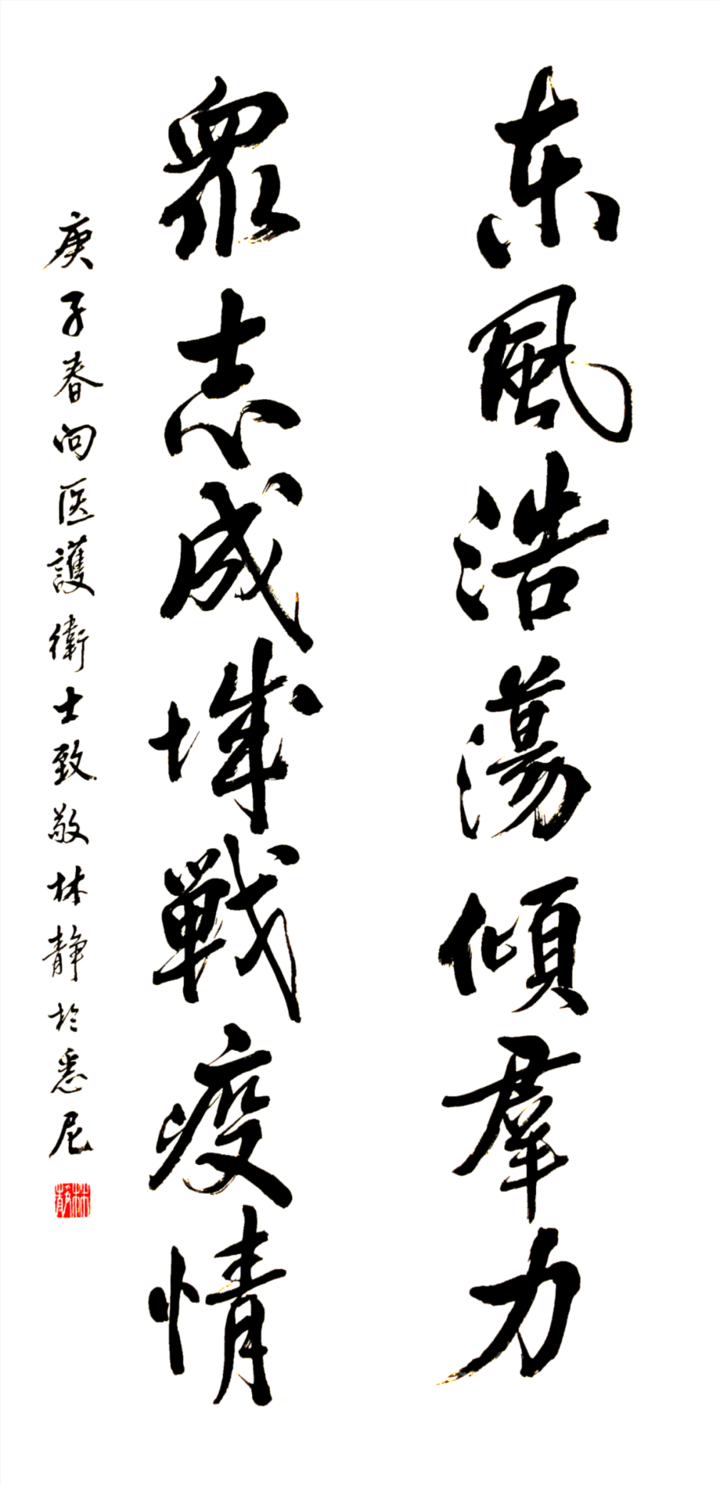 东風浩蕩傾羣力
眾志成城戰疫情
庚子春向医護衛士致敬林静於悉尼
林静